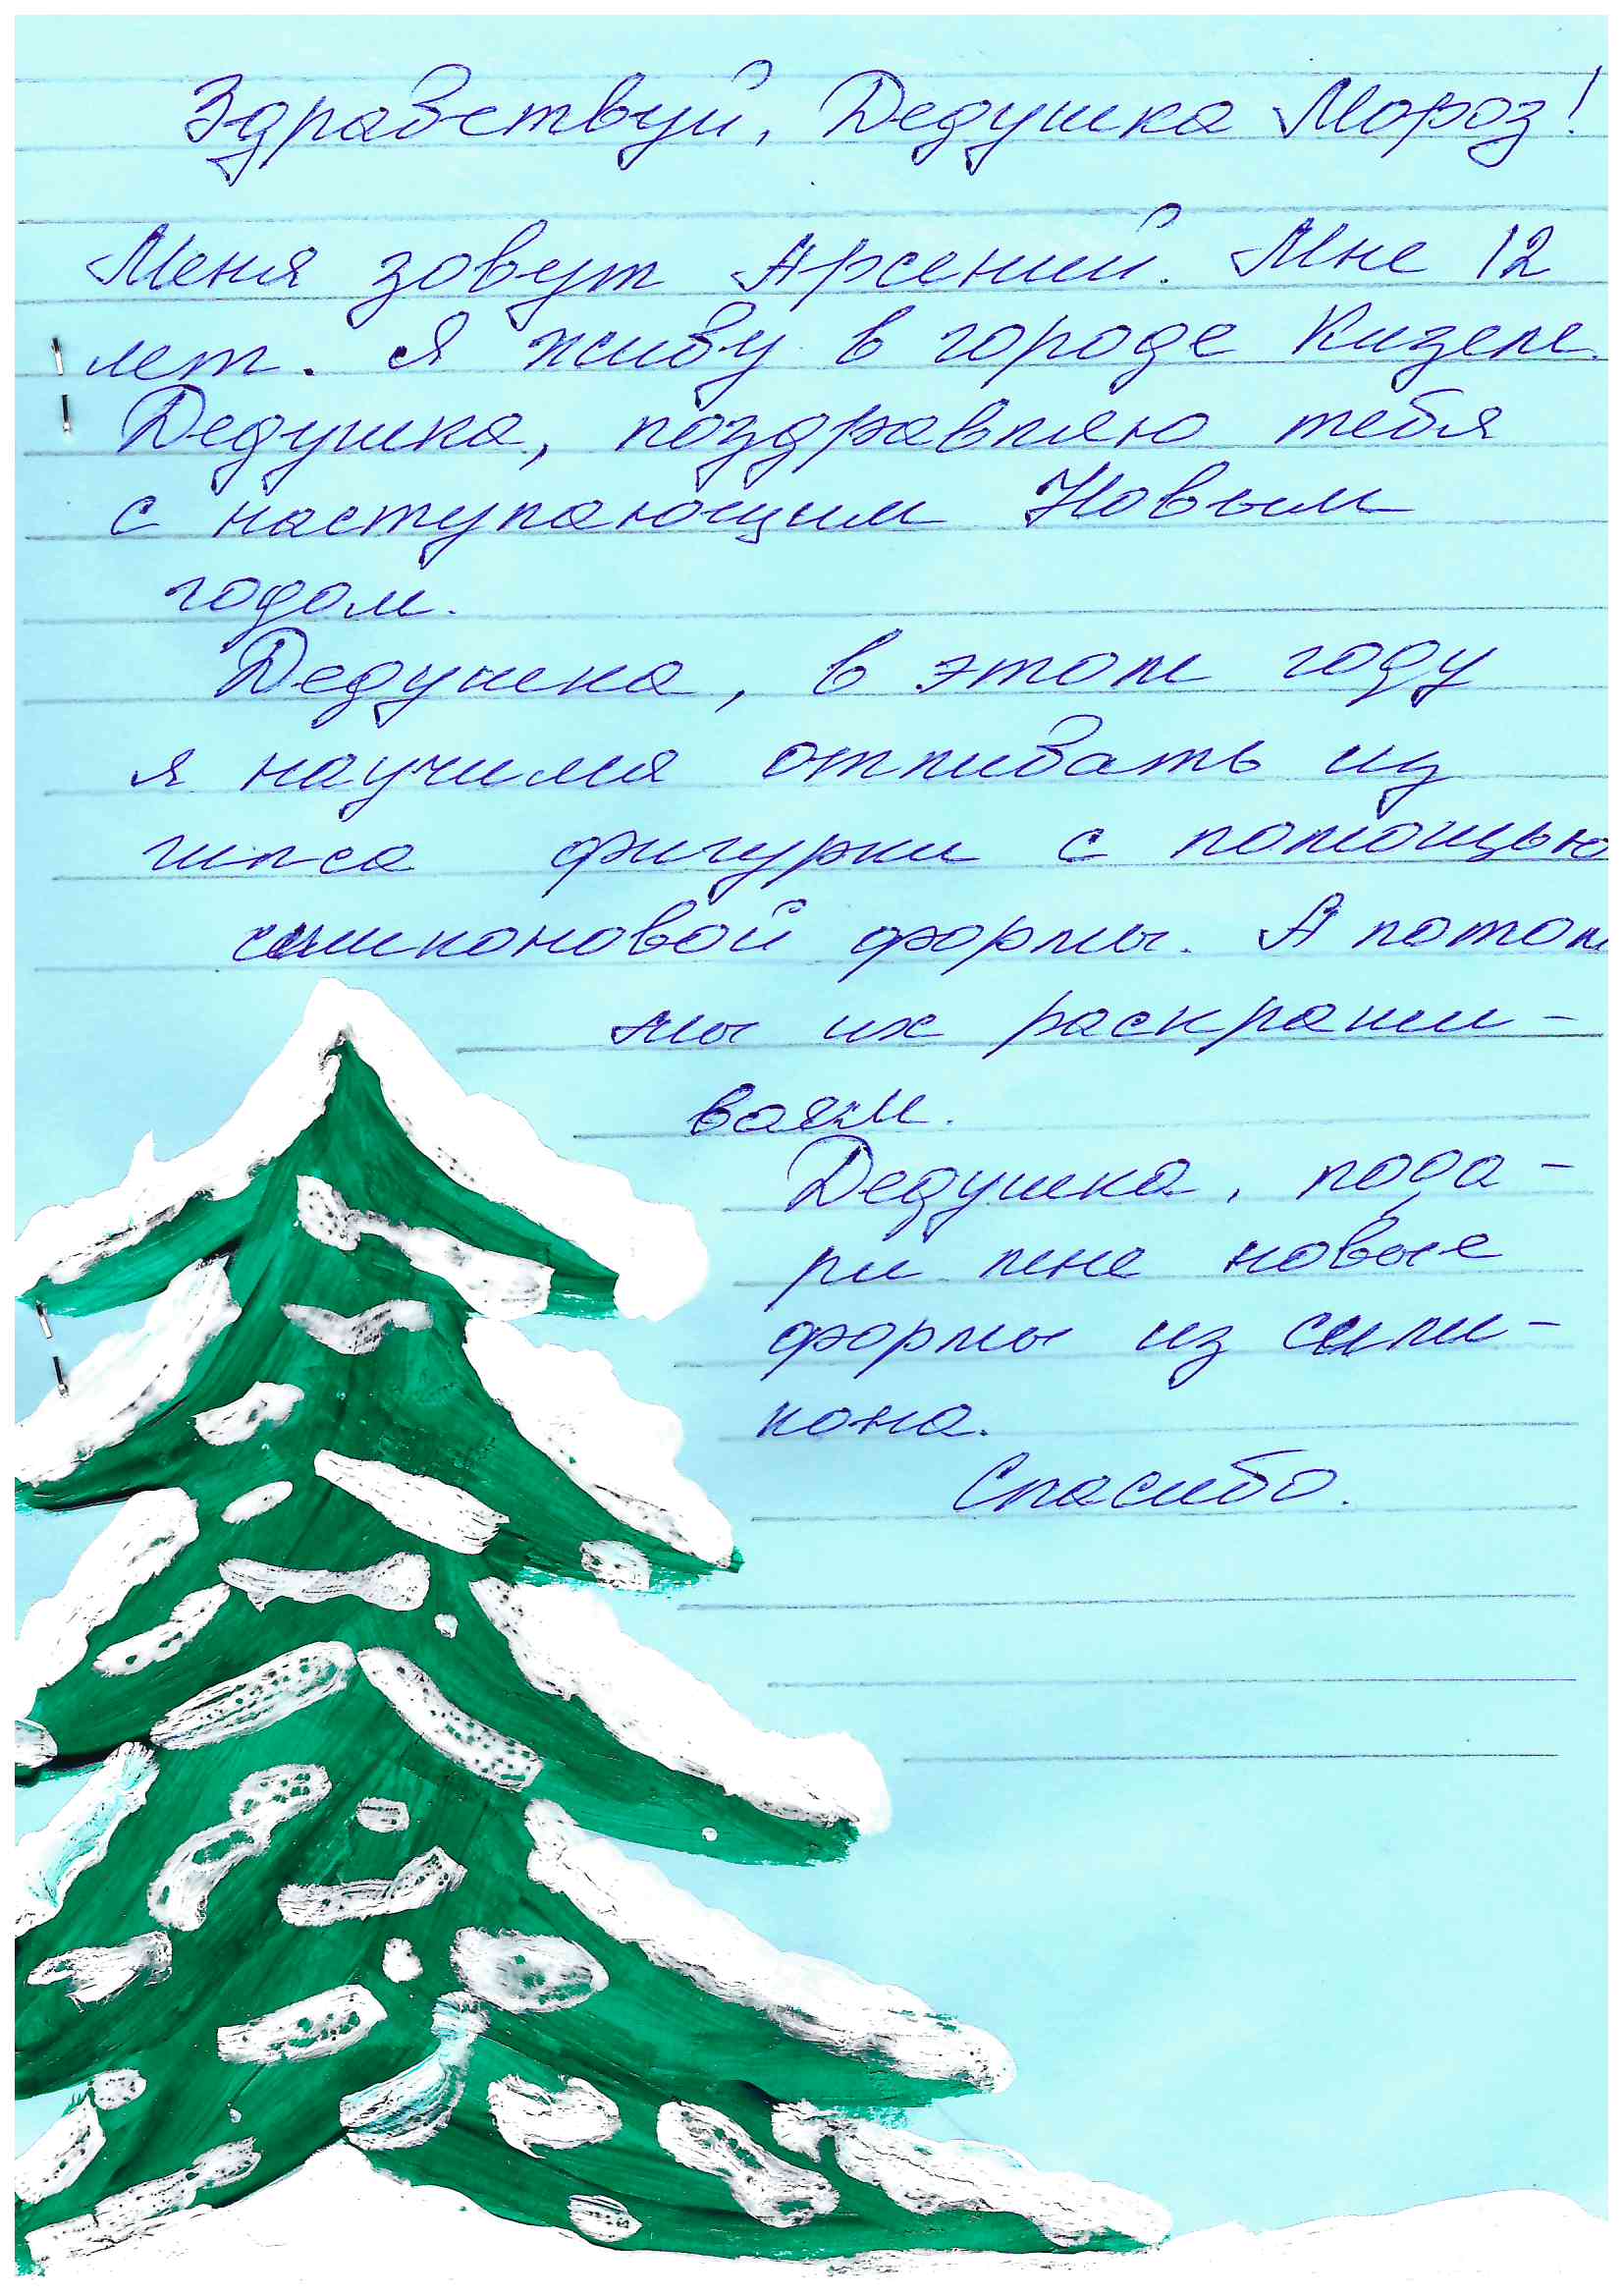 Здравствуй, Дедушка Мороз!
Меня зовут Арсений. Мне 12
лет. Я живу в городе Кизеле.
Дедушка, поздравляю тебя
с наступающим Новым
годом.
Дедушка, в этом году
я научился отливать из
гипса фигурки с помощью
силиконовой формы. А потом
мы их раскраши-
ваем.
Дедушка, пода-
ри мне новые
формы из сили-
кона.
Спасибо.